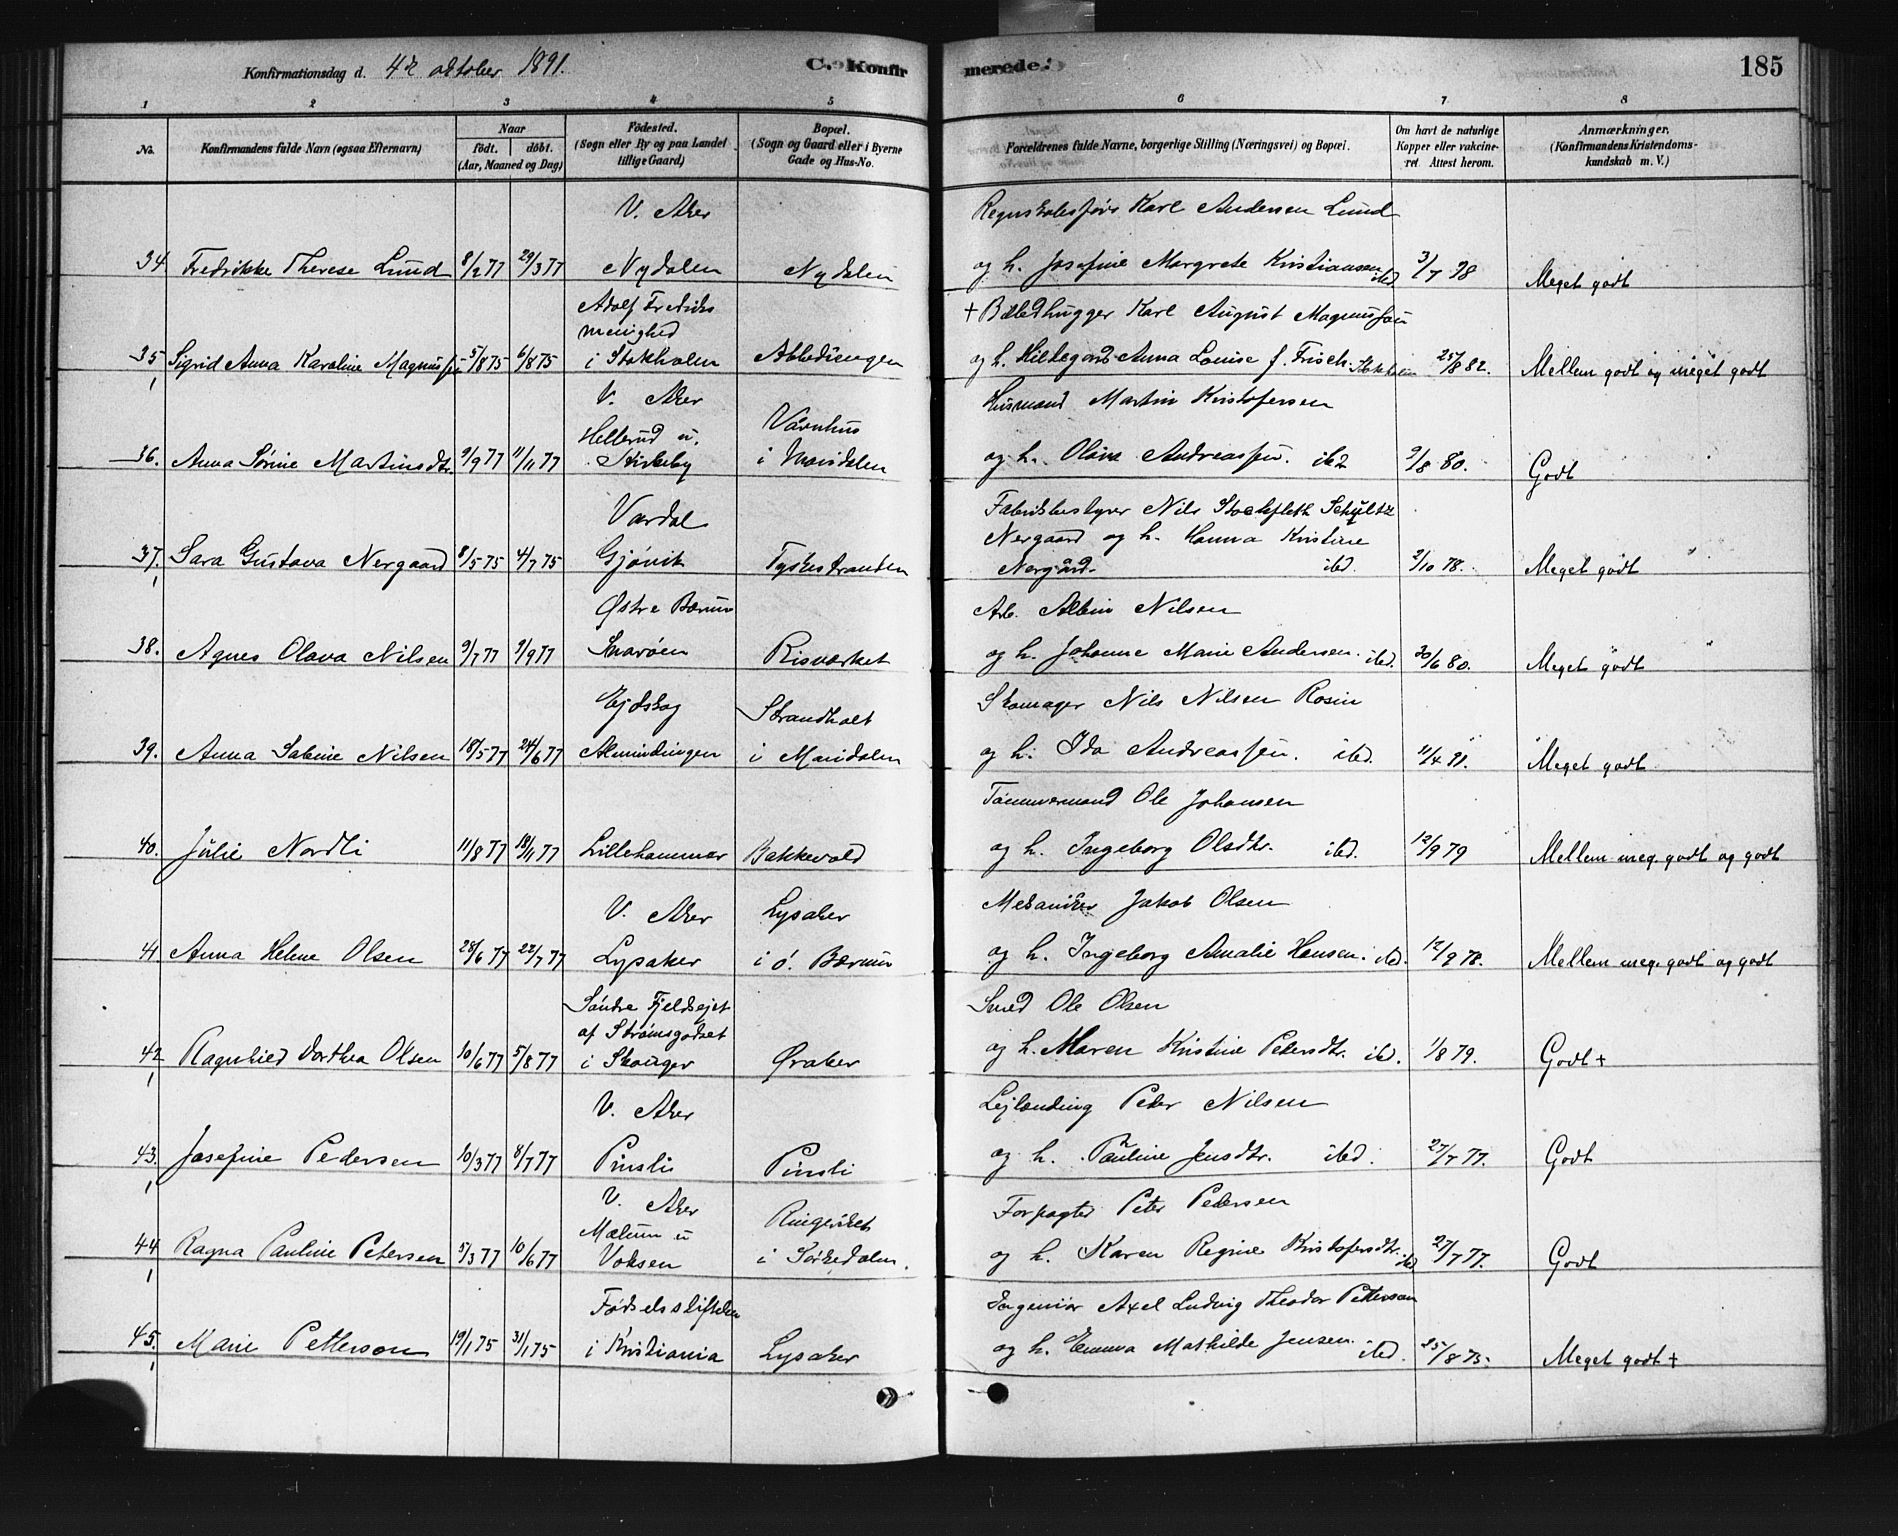 Konfirmationsdag d. 4de oktober 1891.
C. Konfirmerede.
185
1 2 3 4 5 6 7 8
No.
Konfirmandens fulde Navn (ogsaa Efternavn)
Naar
født. døbt.
(Aar, Maaned og Dag)
Fødested.
(Sogn eller By og paa Landet
tillige Gaard)
Bopæl.
(Sogn og Gaard eller i Byerne
Gade og Hus-No.
Forældrenes fulde Navne, borgerlige Stilling (Næringsvei) og Bopæl.
Om havt de naturlige
Kopper eller vaccine-
ret Attest herom.
Anmærkninger.
(Konfirmandens Kristendoms-
kundskab m. V.)
V. Aker Regnskabsfører Karl Andersen Lund
34 Fredrikke Therese Lund 8/2 77 29/3 77 Nydalen Nydalen og h. Josefine Margrete Kristiansen ibd 3/7 78 Meget godt
Adolf Fredriks
menighed + Billedhugger Karl August Magnussen
35 Sigrid Anna Karoline Magnussen 5/8 75 6/8 75 i Stokholm Abbediengen og h. Hildegard Anna Louise f. Frisch. Stokholm 25/8 82. Mellem godt og meget godt
V. Aker Husmand Martin Kristofersen
Hellerud u. Vårnhus
36. Anna Sørine Martinsdtr. 9/9 77 11/11 77 Kirkeby i Maridalen og h. Olava Andreassen. ibd 9/8 80. Godt
Vardal Fabrikbestyrer Nils Stockfleth Schultz
Nergaard og h. Hanna Kristine
37. Sara Gustava Nergaard 8/5 75 4/7 75 Gjøvik Tyskestranden Nergård ibd. 2/10 78. Meget godt
Østre Bærum Arb. Albin Nilsen
38. Agnes Olava Nilsen 9/7 77 9/9 77 Snarøen Risværket og h. Johanne Marie Andersen. ibd. 30/6 80. Meget godt
Ejdskog Strandholt Skomager Nils Nilsen Rosin
39. Anna Sabine Nilsen 18/5 77 24/6 77 Almindingen i Maridalen og h. Ida Andreassen. ibd. 11/4 91. Meget godt
Tømmermand Ole Johansen
40. Julie Nordli 11/8 77 18/11 77 Lillehammer Bakkevold og h. Ingeborg Olsdtr. ibd. 12/9 79 Mellem meg. godt og godt
V. Aker Lysaker Mekaniker Jakob Olsen
41 Anna Helene Olsen 28/6 77 22/7 77 Lysaker i ø. Bærum og h. Ingeborg Amalie Hansen. ibd. 12/9 78. Mellem meg. godt og godt
Søndre Fjeldsejet Smed Ole Olsen
af Strømsgodset
42 Ragnhild Dorthea Olsen 10/6 77 5/8 77 i Skouger Øraker og h. Maren Kristine Petersdtr. ibd. 1/8 79. Godt +
V. Aker Lejlænding Peter Nilsen
43. Josefine Pedersen 10/3 77 8/7 77 Pinsli Pinsli og h. Pauline Jensdtr. ibd. 27/7 77. Godt
V. Aker Forpagter Peter Pedersen
Mælum u Ringeriket
44 Ragna Pauline Petersen 5/3 77 10/6 77 Voksen i Sørkedalen. og h. Karen Regine Kristofersdtr. ibd 27/7 77. Godt
Fødselsstiftelsen Ingeniør Axel Ludvig Theodor Petterson
45. Marie Petterson 19/1 75 31/1 75 i Kristiania Lysaker og h. Emma Mathilde Jensen. ibd. 25/8 75. Meget godt +